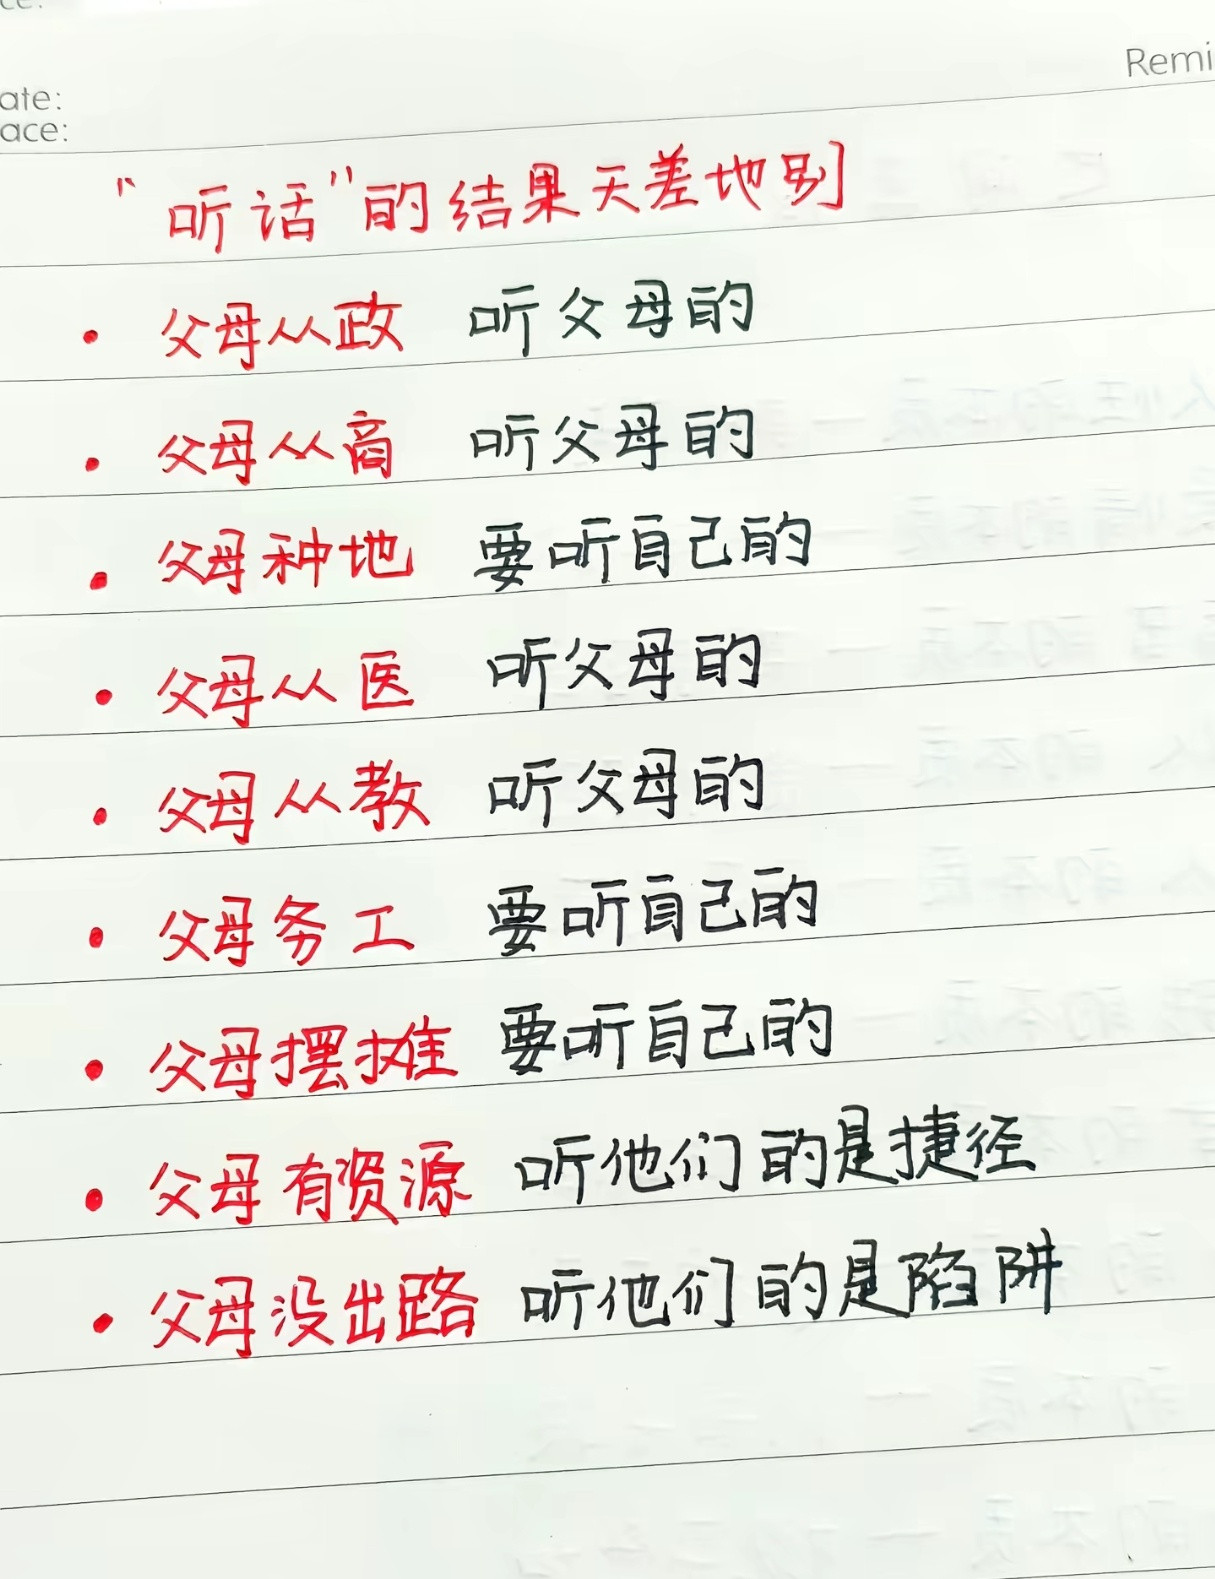 Remi
ate:
ace:
“听话”的结果天差地别
• 父母从政 听父母的
• 父母从商 听父母的
• 父母种地 要听自己的
• 父母从医 听父母的
• 父母从教 听父母的
• 父母务工 要听自己的
• 父母摆摊 要听自己的
• 父母有资源 听他们的是捷径
• 父母没出路 听他们的是陷阱